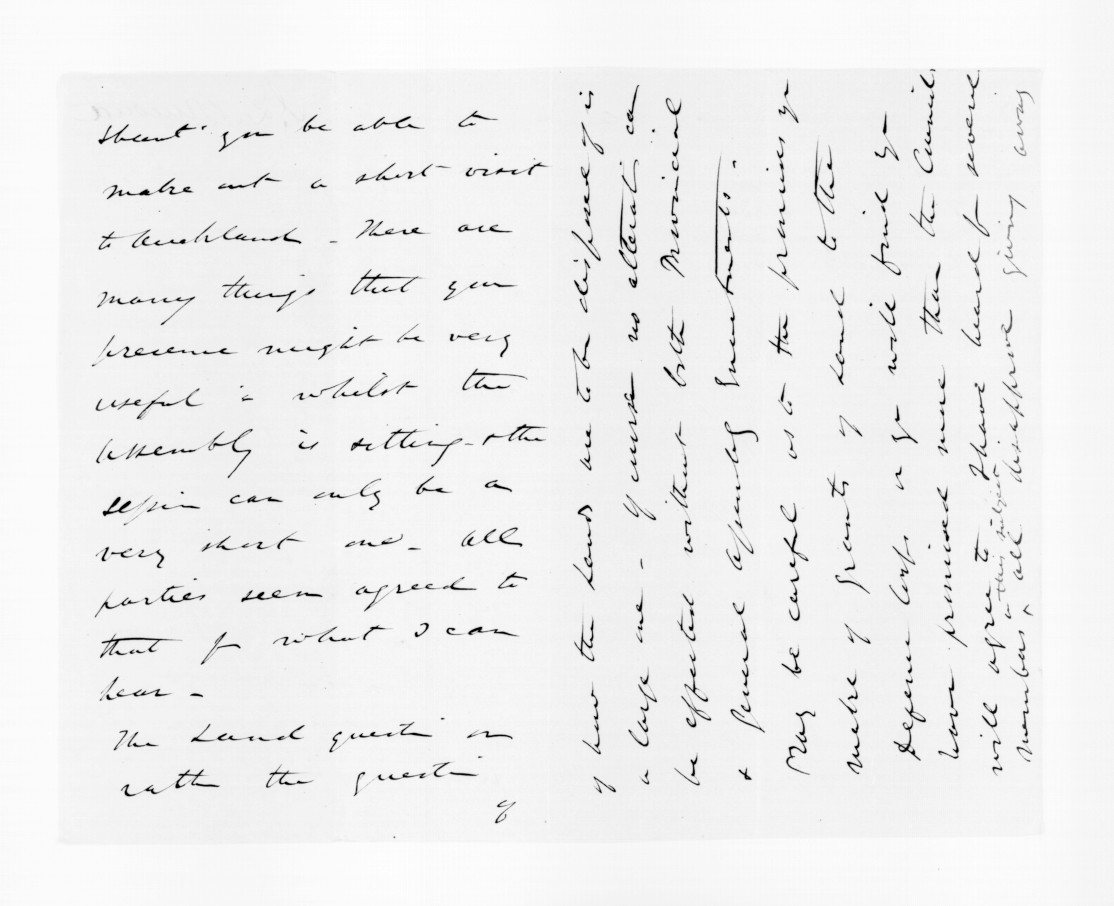 Shant you be able to
make out a short visit
to Auckland - There are
many things that your
presence might be very
useful in whilst the
Assembly is sitting - & the
session can only be a
very short one - All
parties seem agreed to
that fr what I can
hear -
The Land questn or
rathr the questn
of
of how the Lands are to be disposed of is
a large one - Of course no alteratn can
be effected without both Provincial
& General Assembly Enactments.
Pray be careful as to the promises yr
make of grants of land to the
Defence Corps or yr will find yr
have promised more than the Council
will agree to I have heard of several
members on this subject all disapprove giving away